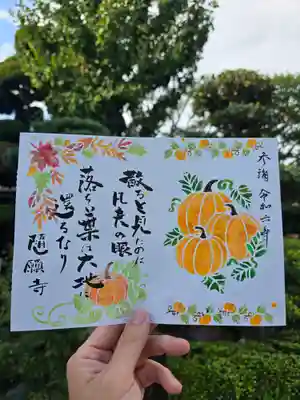 奉拝 令和六年
散ると見たのは
凡夫の眼
落ち葉は大地に
還るなり
随願寺